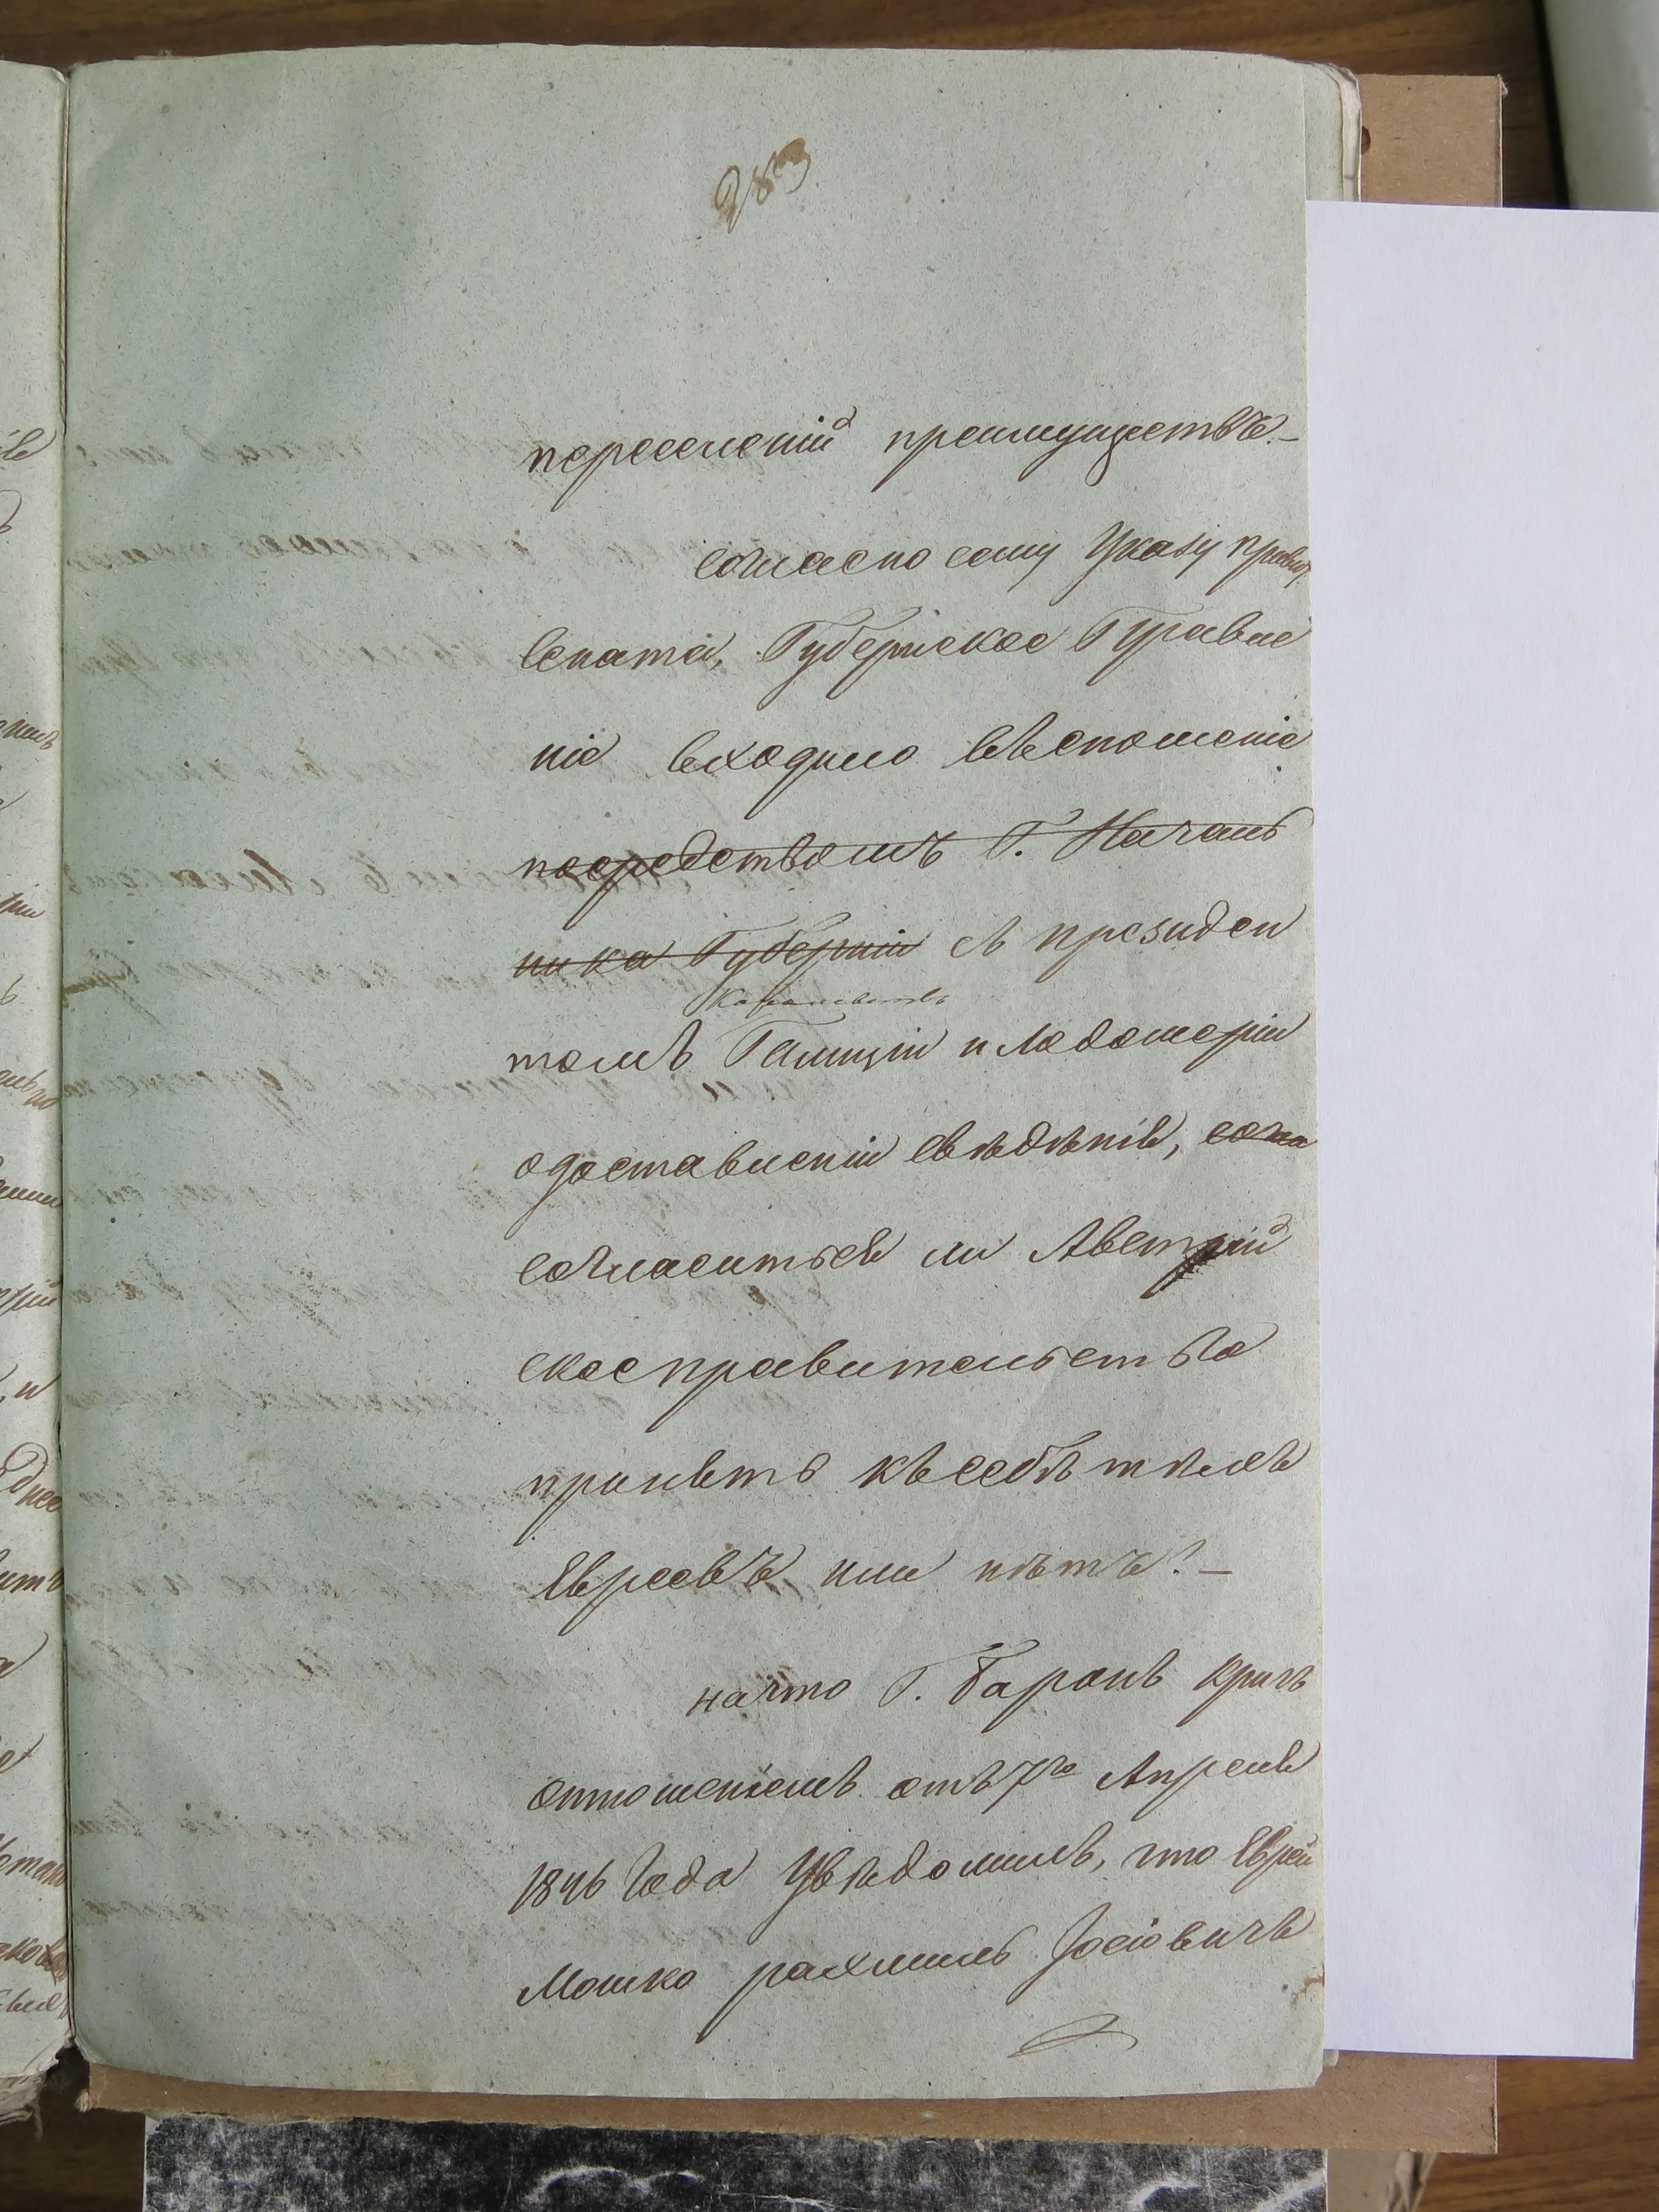 283
переселеній преимуществъ.—
согласно сему Указу правит.
Сената, Губернское Правле
ніе входило въ сношеніе
посредствомъ Г. Началь
ника Губерніи съ президен
Королевствъ
томъ Галиціи и Лодомеріи
о доставленіи свѣдѣнія, согла
согласиться ли Австрій
ское правительство
принять къ себѣ тѣхъ
Евреевъ или нѣтъ?—
на что Г. Баронъ Кригъ
отношеніемъ отъ 7го Апреля
1846 года Увѣдомилъ, что Еврей
Мошко рахмиль Іосіовичъ